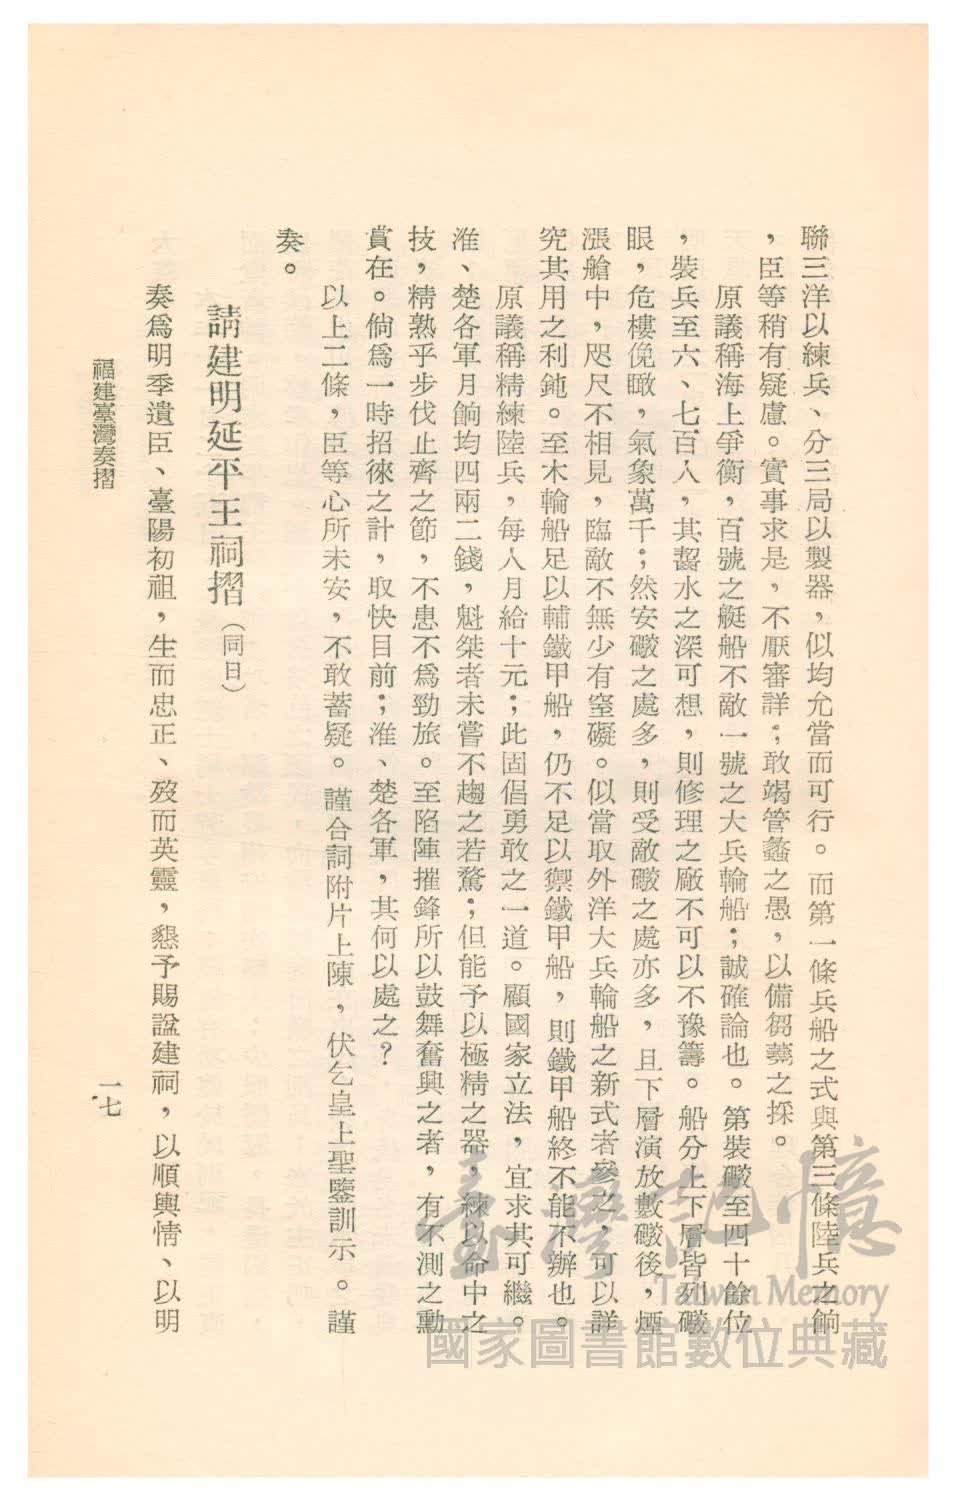 聯三洋以練兵、分三局以製器，似均允當而可行。而第一條兵船之式與第三條陸兵之餉
，臣等稍有疑慮。實事求是，不厭審詳；敢竭管蠡之愚，以備芻蕘之採。
原議稱海上爭衡，百號之艇船不敵一號之大兵輪船；誠確論也。第裝礮至四十餘位
，裝兵至六、七百人，其齧水之深可想，則修理之廠不可以不豫籌。船分上下層皆列礮
眼，危樓俛瞰，氣象萬千；然安礮之處多，則受敵礮之處亦多，且下層演放數礮後，煙
漲艙中，咫尺不相見，臨敵不無少有窒礙。似當取外洋大兵輪船之新式者參之，可以詳
究其用之利鈍。至木輪船足以輔鐵甲船，仍不足以禦鐵甲船，則鐵甲船終不能不辦也。
原議稱精練陸兵，每人月給十元；此固倡勇敢之一道。顧國家立法，宜求其可繼。
淮、楚各軍月餉均四兩二錢，魁桀者未嘗不趨之若騖；但能予以極精之器，練以命中之
技，精熟乎步伐止齊之節，不患不爲勁旅。至陷陣摧鋒所以鼓舞奮興之者，有不測之勳
賞在。倘爲一時招徠之計，取快目前；淮、楚各軍，其何以處之？
以上二條，臣等心所未安，不敢蓄疑。謹合詞附片上陳，伏乞皇上聖鑒訓示。謹
奏。
請建明延平王祠摺（同日）
奏爲明季遺臣、臺陽初祖，生而忠正、歿而英靈，懇予賜諡建祠，以順輿情、以明
福建臺灣奏摺
一七
臺灣記憶
Taiwan Memory
國家圖書館數位典藏